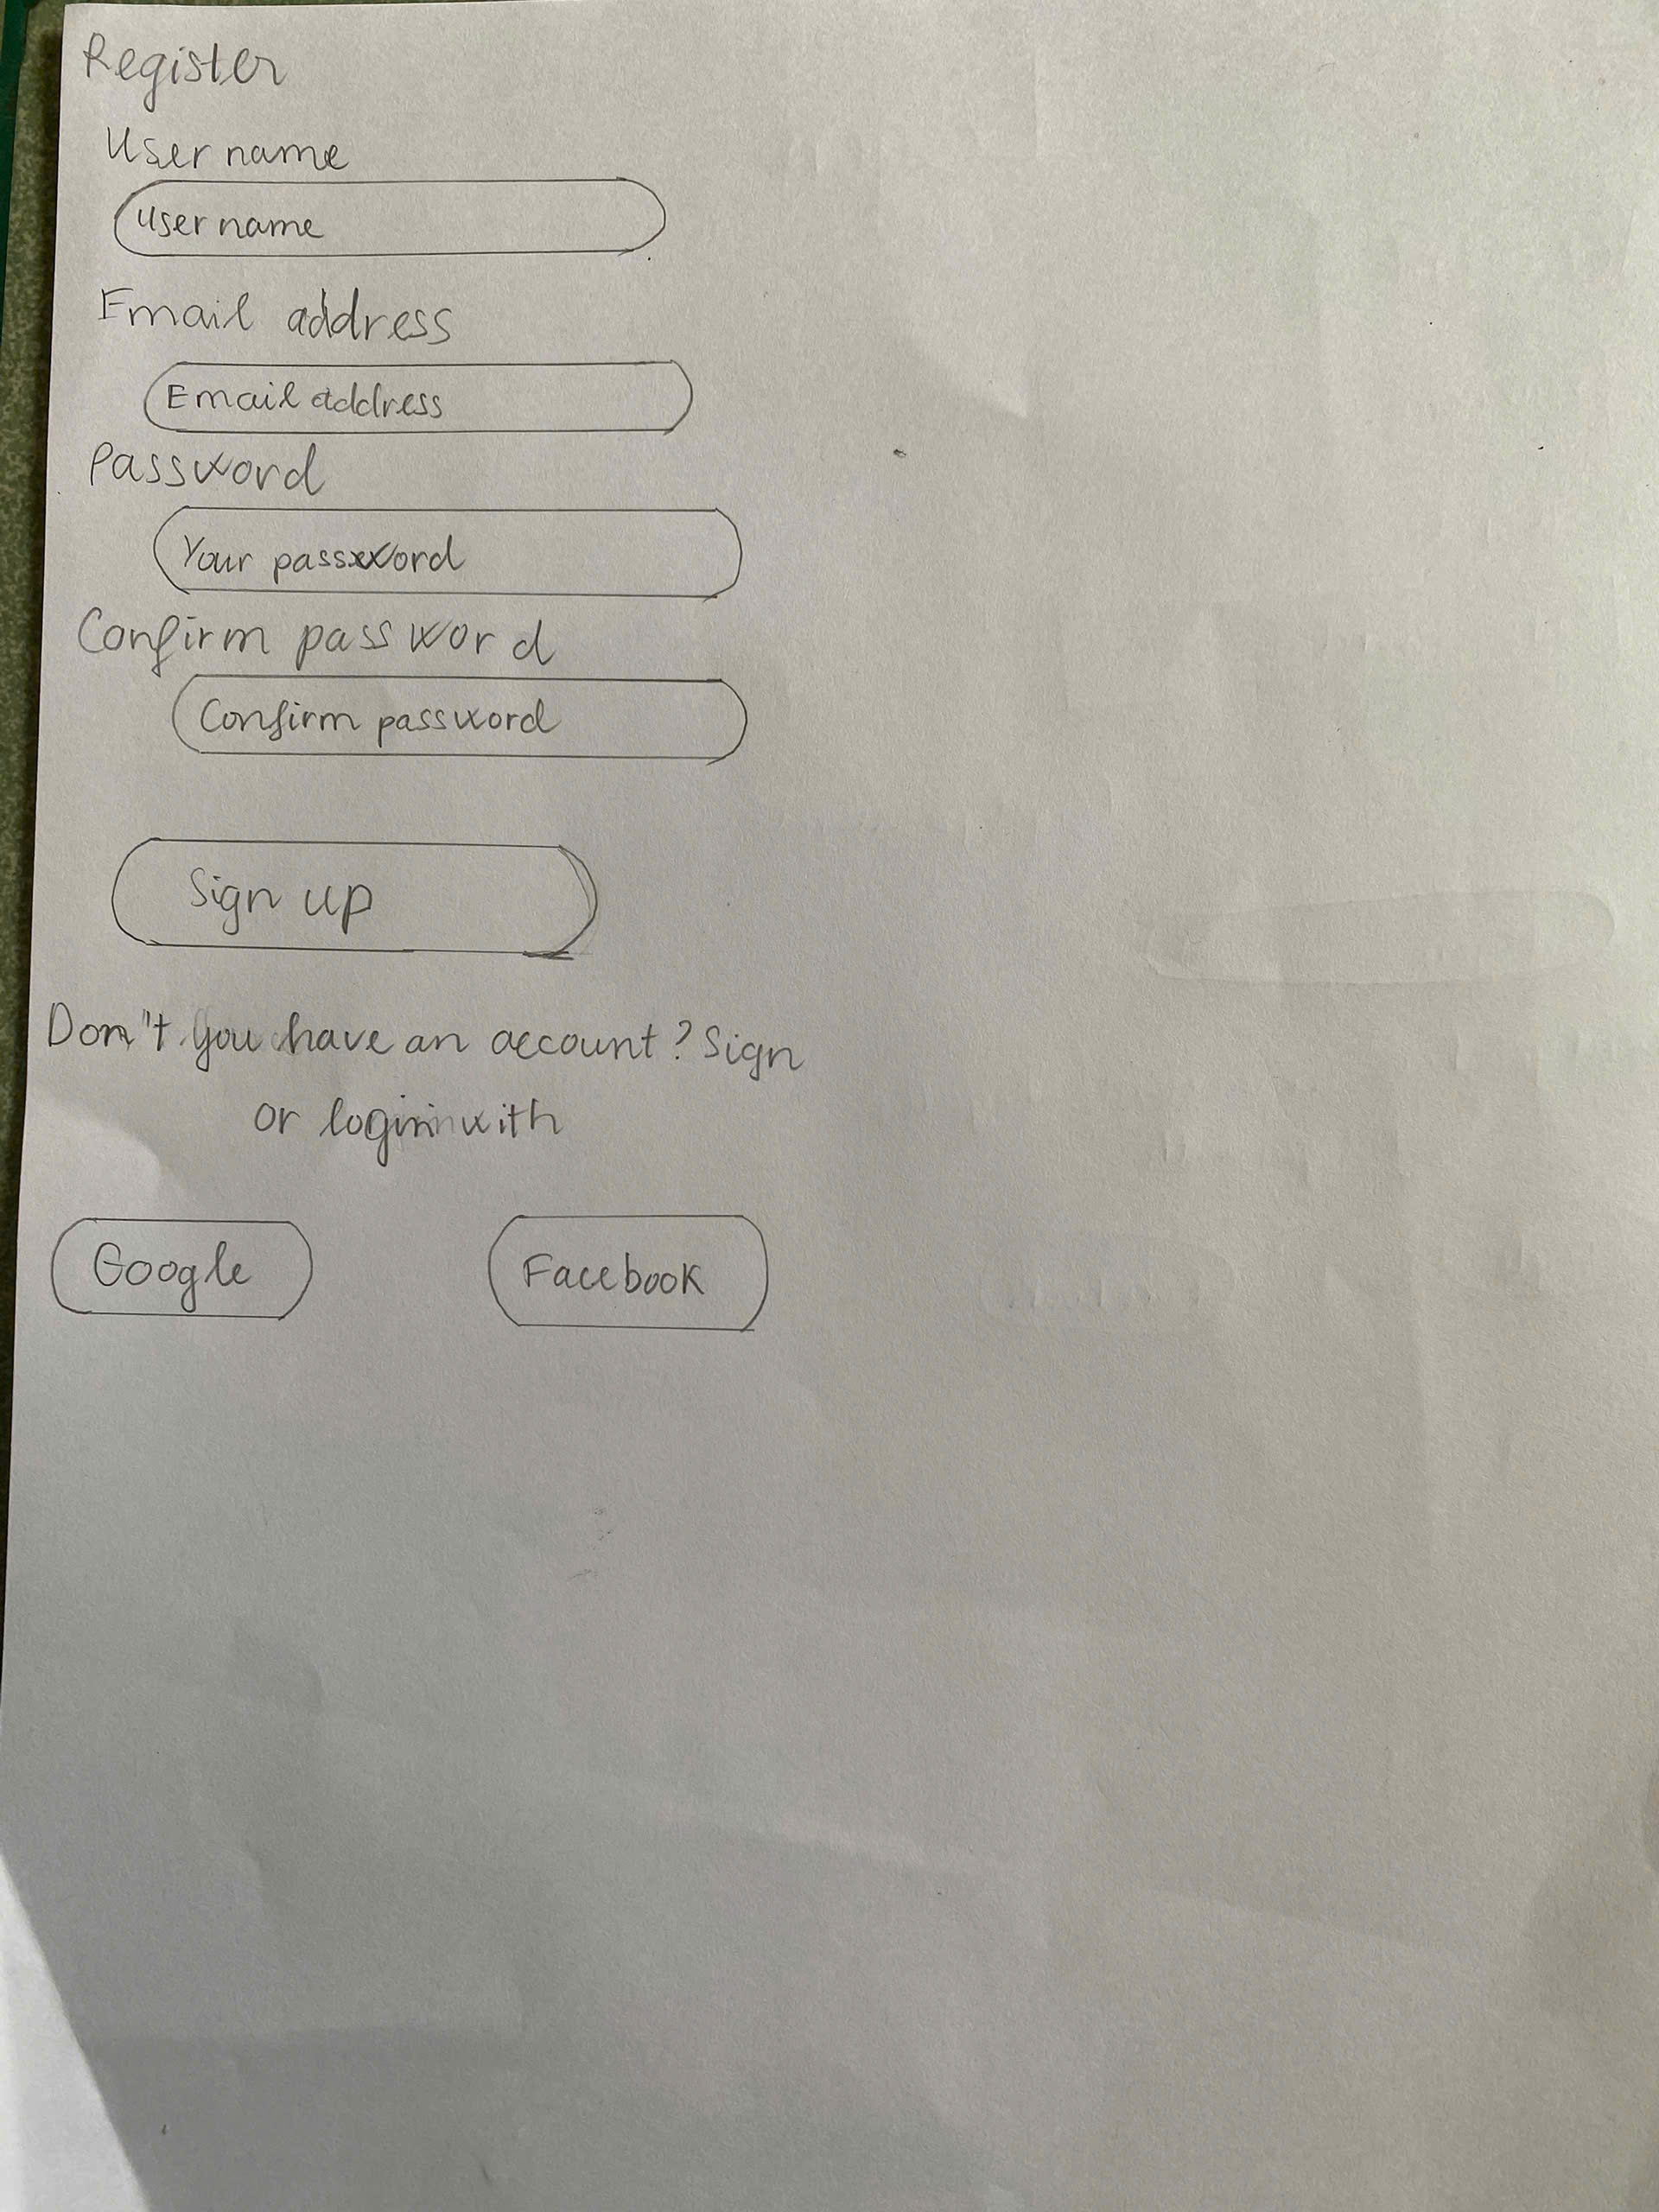 Register
User name
User name
Email address
Email address
Password
Your password
Confirm password
Confirm password
Sign up
Don't you have an account? Sign
or login with
Google Facebook